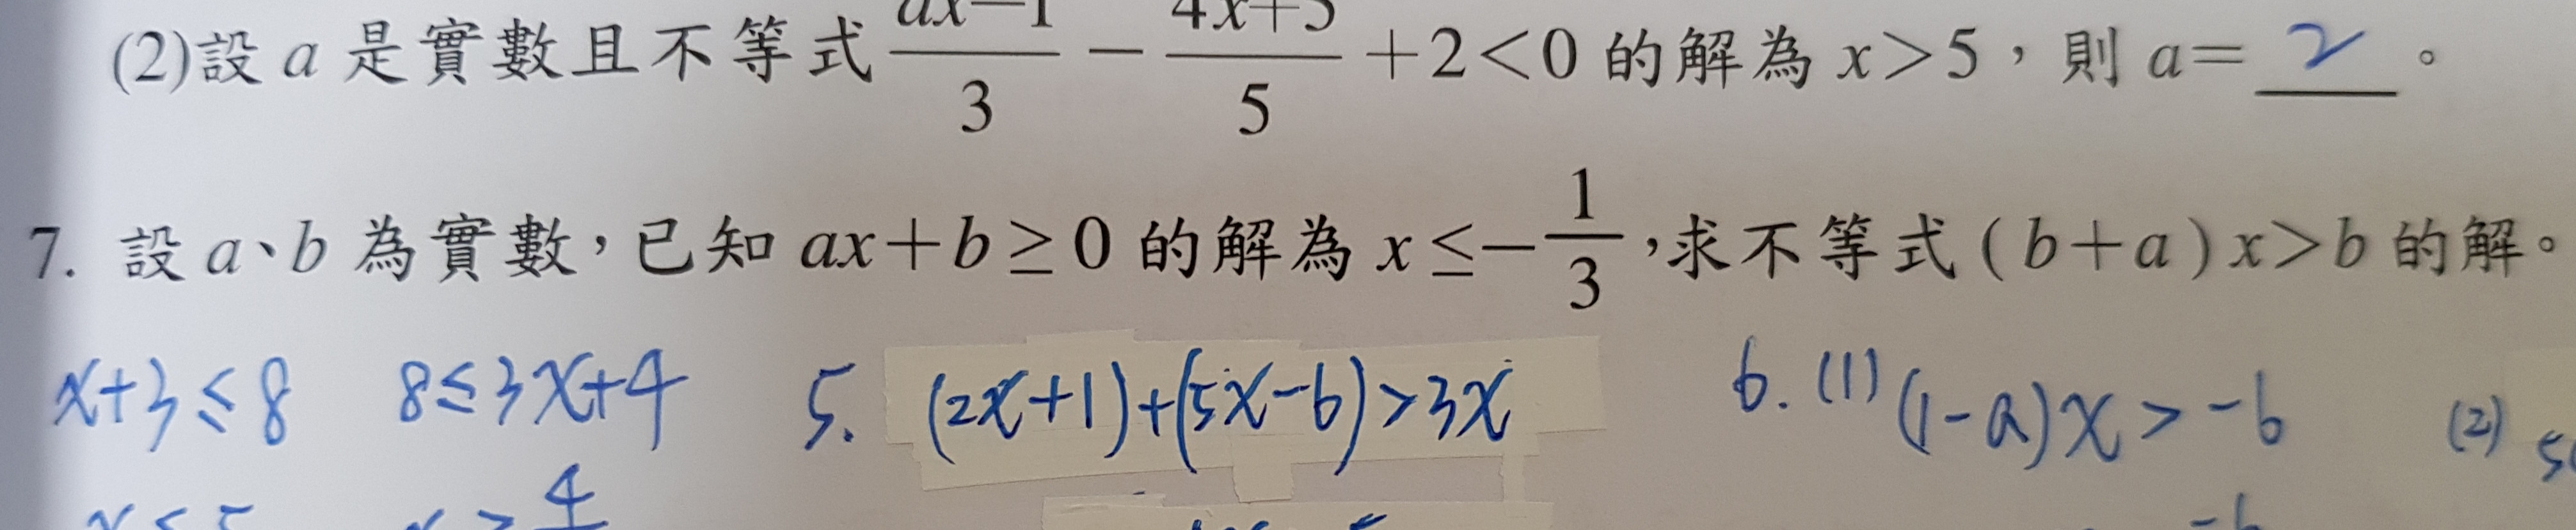 (2)設 a 是實數且不等式 (ax−1)/3 − (4x+5)/5 +2<0 的解為 x>5，則 a= 2 。
7. 設 a、b 為實數，已知 ax+b≥0 的解為 x≤−1/3，求不等式(b+a)x>b 的解。
x+3≤8 8≤3x+4 5. (2x+1)+(5x−6)>3x 6.(1) (1−a)x>−6 (2)